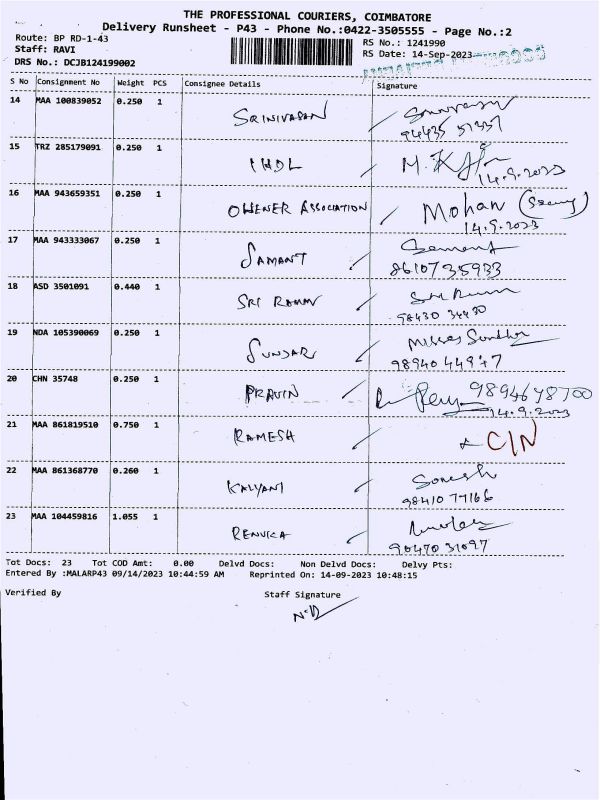 THE PROFESSIONAL COURIERS, COIMBATORE
Delivery Runsheet - P43 - Phone No.:0422-3505555 - Page No.:2
Route: BP RD-1-43
RS No.: 1241990
Staff: RAVI
RS Date: 14-Sep-2023
DRS No.: DCJB124199002
S No Consignment No Weight PCS Consignee Details Signature
14 MAA 100839052 0.250 1 SRINIVASAN
94435 51337
15 TRZ 285179091 0.250 1 IHDL M.
14.9.2023
16 MAA 943659351 0.250 1 OWENER ASSOCIATION Mohan
14.9.2023
17 MAA 943333067 0.250 1 SAMANT
8610735933
18 ASD 3501091 0.440 1 SRI RAMAN
98430 34430
19 NDA 105390069 0.250 1 SUNDARI
98940 44947
20 CHN 35748 0.250 1 PRAVIN 9894678700
14.9.2023
21 MAA 861819510 0.750 1 RAMESH C/N
22 MAA 861368770 0.260 1 KALYANI
98410 77166
23 MAA 104459816 1.055 1 RENUKA
90470 31097
Tot Docs: 23 Tot COD Amt: 0.00 Delvd Docs: Non Delvd Docs: Delvy Pts:
Entered By :MALARP43 09/14/2023 10:44:59 AM Reprinted On: 14-09-2023 10:48:15
Verified By Staff Signature